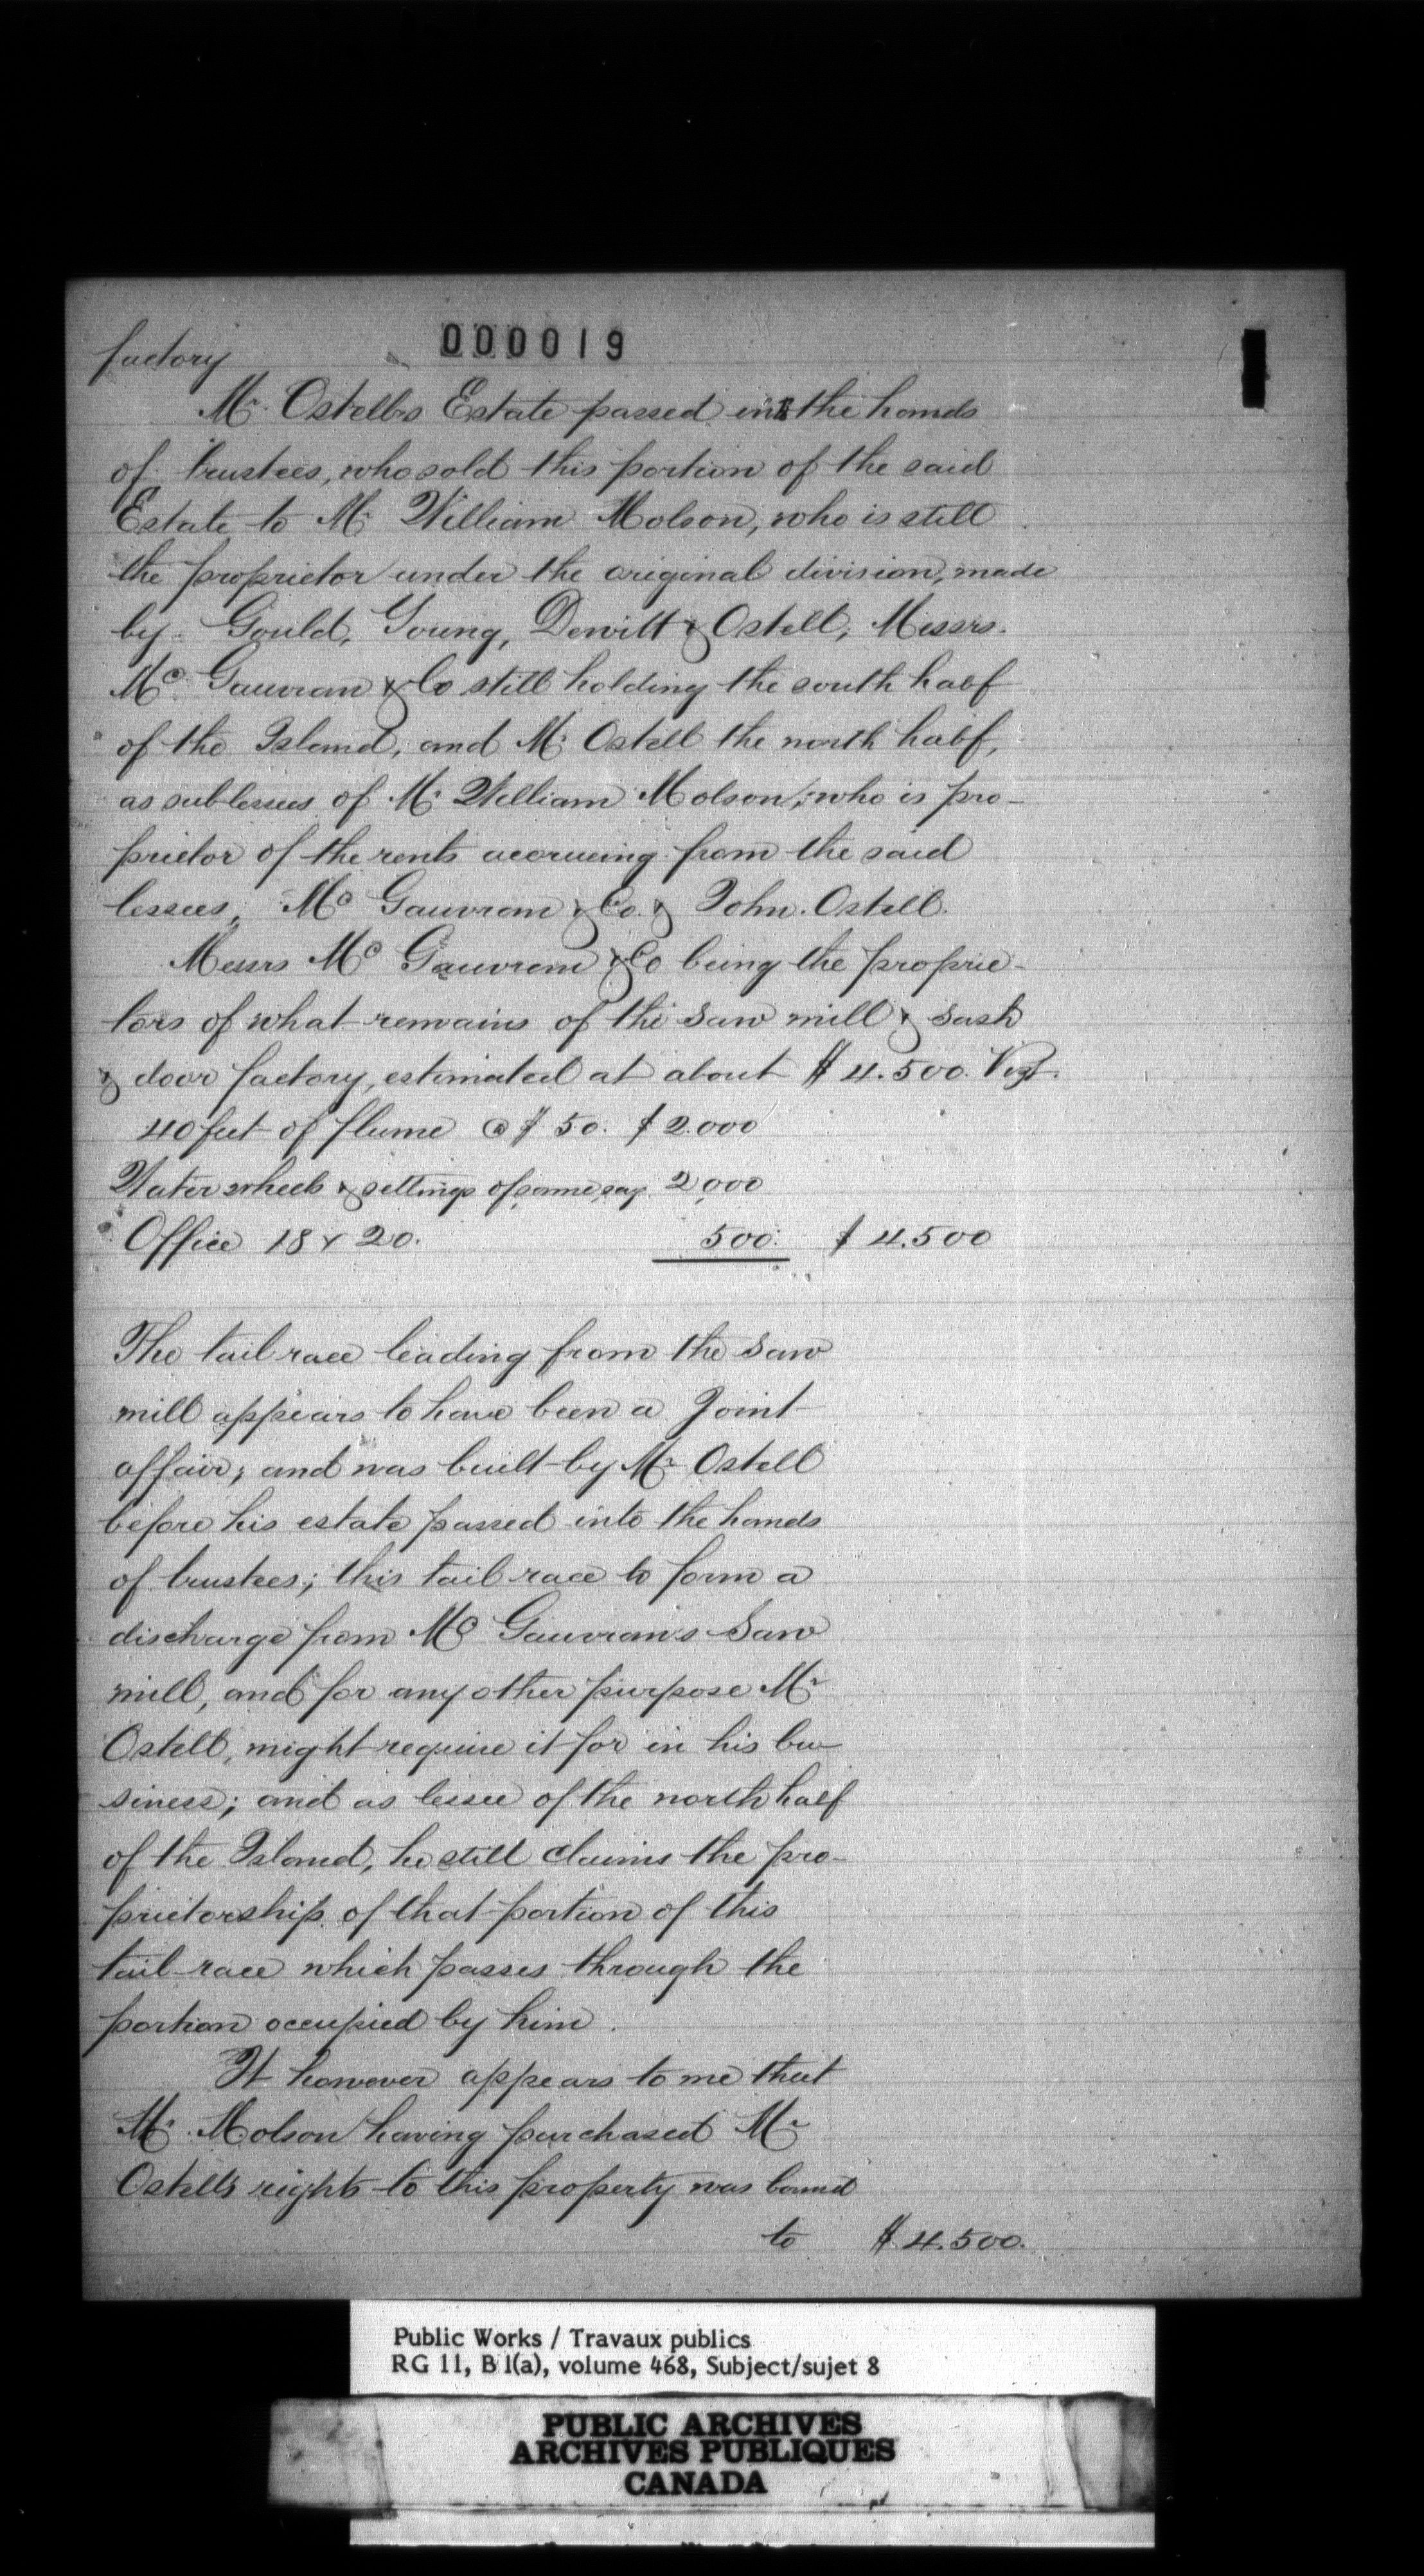 000019
factory
Mr. Ostell's Estate passed into the hands
of trustees, who sold this portion of the said
Estate to Mr. William Molson, who is still
the proprietor under the original division, made
by Gould, Young, Dewitt & Ostell, Messrs.
Mc Gauvran & Co still holding the south half
of the Island, and Mr. Ostell the north half,
as sublessees of Mr. William Molson, who is pro-
prietor of the rents accrueing from the said
lessees, Mc Gauvran & Co. & John Ostell.
Messrs Mc Gauvran & Co being the proprie-
tors of what remains of the saw mill & sash
& door factory, estimated at about $4.500. Vizt.
40 feet of flume @ $50. $2.000
Water wheels & settings of same say 2,000
Office 18 x 20. 500. $4.500
The tail race leading from the saw
mill appears to have been a Joint
affair; and was built by Mr. Ostell
before his estate passed into the hands
of trustees; this tail race to form a
discharge from Mc Gauvran's Saw
mill, and for any other purpose Mr
Ostell, might require it for in his bu-
siness; and as lessee of the north half
of the Island, he still claims the pro-
prietorship of that portion of this
tail race which passes through the
portion occupied by him.
It however appears to me that
Mr. Molson having purchased Mr
Ostell's rights to this property was bound
to $4.500.
Public Works / Travaux publics
RG 11, B 1(a), volume 468, Subject/sujet 8
PUBLIC ARCHIVES
ARCHIVES PUBLIQUES
CANADA